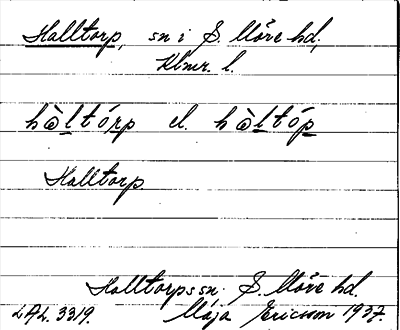 Halltorp, sn i S. Möre hd,
Klmr. l.
hàltórp el. hàltóp
Halltorp.
Halltorps sn. S. Möre hd.
LAL. 3319. Maja Ericsson 1937.